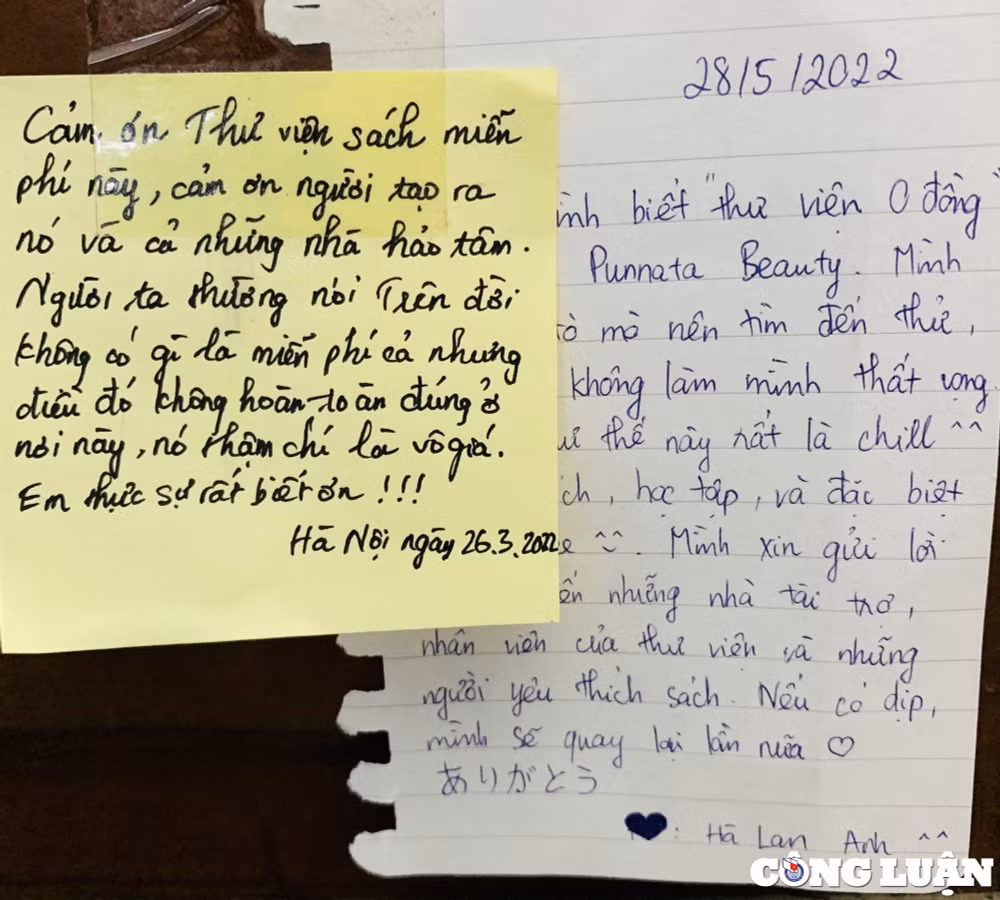 Cảm ơn Thư viện sách miễn
phí này, cảm ơn người tạo ra
nó và cả những nhà hảo tâm.
Người ta thường nói Trên đời
không có gì là miễn phí cả nhưng
điều đó không hoàn toàn đúng ở
nơi này, nó thậm chí là vô giá.
Em thực sự rất biết ơn !!!
Hà Nội ngày 26.3.2022
28/5/2022
biết "thư viện 0 đồng"
Punnata Beauty. Mình
mò nên tìm đến thử,
không làm mình thất vọng
thế này rất là chill ^^
học tập, và đặc biệt
Mình xin gửi lời
những nhà tài trợ,
nhân viên của thư viện và những
người yêu thích sách. Nếu có dịp,
mình sẽ quay lại lần nữa ♡
ありがとう
♥: Hà Lan Anh ^^
CÔNG LUẬN